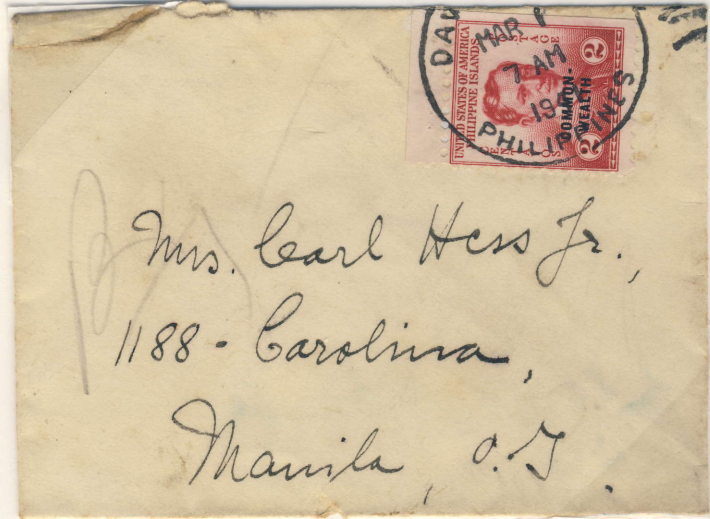 DAV
MAR 1
7 AM
19
PHILIPPINES
UNITED STATES OF AMERICA
PHILIPPINE ISLANDS
POSTAGE
CENTAVOS
2 2
COMMON-
WEALTH
Mrs. Carl Hess Jr.,
1188 - Carolina,
Manila, P.I.